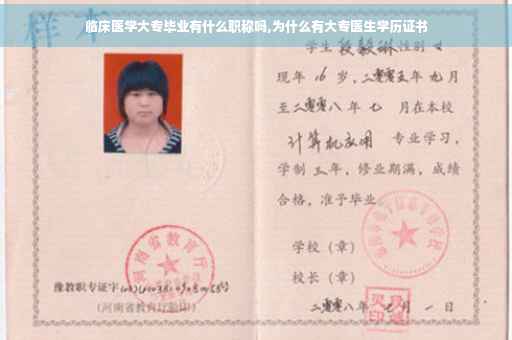 临床医学大专毕业有什么职称吗,为什么有大专医生学历证书
样本
学生段毅琳性别女
现年16岁,二零零五年九月
至二零零八年七月在本校
计算机应用 专业学习,
学制三年,修业期满,成绩
合格,准予毕业。
学校(章)
校长(章)
二零零八年七月一日
河南省教育厅
豫教职专证字
(河南省教育厅验印)